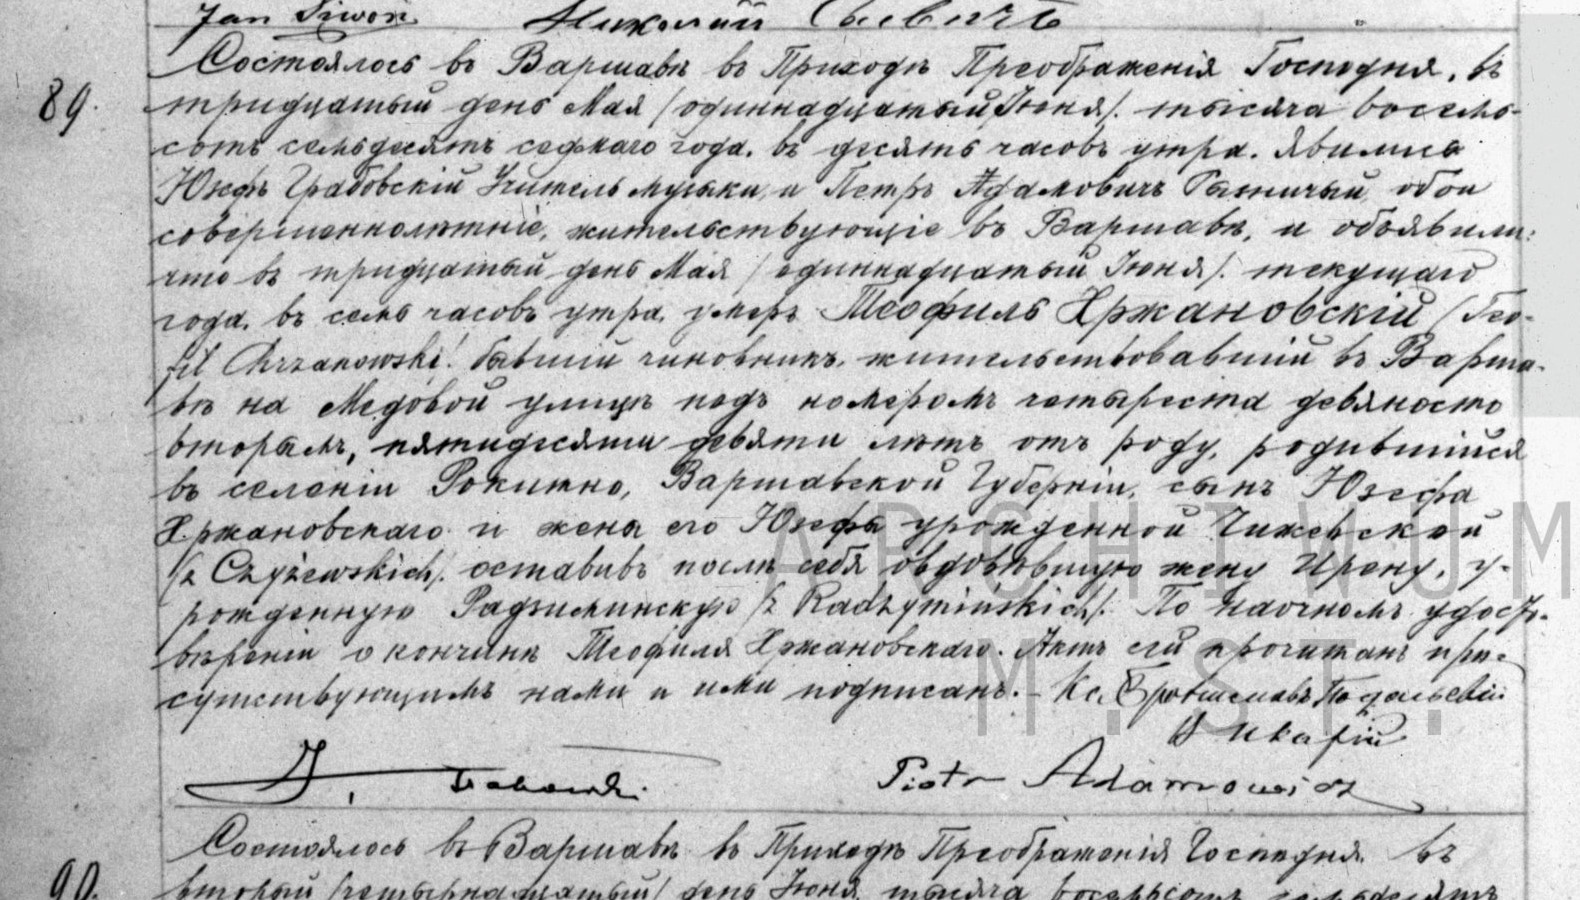 Jan Siwoń Николай
Состоялось въ Варшавѣ въ Приходѣ Преображенія Господня, въ
89. тридцатый день Мая /одиннадцатый Іюня/. тысяча восемь-
сотъ семьдесятъ седмаго года, въ десять часовъ утра. Явились
Юзефъ Грабовскій Учитель музыки, и Петръ Адамовичъ обои
совершеннолѣтніе, жительствующіе въ Варшавѣ, и объявили:
что въ тридцатый день Мая /одиннадцатый Іюня/. текущаго
года, въ семь часовъ утра, умеръ Теофиль Хржановскій /Teo-
fil Chrzanowski/ бывшій чиновникъ, жительствовавшій въ Варша-
вѣ на Медовой улицѣ подъ номеромъ четыреста девяносто
вторымъ, пятидесяти девяти лѣтъ отъ роду, родившійся
въ селеніи Рокитно, Варшавской Губерніи, сынъ Юзефа
Хржановскаго и жены его Юзефы урожденной Чижевской
/z Czyżewskich/. оставивъ послѣ себя овдовѣвшую жену Ирену, у-
рожденную Радзиминскую /z Radzymińskich/. По наочномъ удосто-
вѣреніи о кончинѣ Теофиля Хржановскаго. Актъ сей прочитанъ при-
сутствующимъ нами и ими подписанъ. - Кс. Брониславъ
Викарій
J. Grabowski Piotr Adamowicz
Состоялось въ Варшавѣ въ Приходѣ Преображенія Господня, въ
90. вторый /четырнадцатый/ день Іюня, тысяча восемьсотъ семьдесятъ
ARCHIWUM
M. ST.